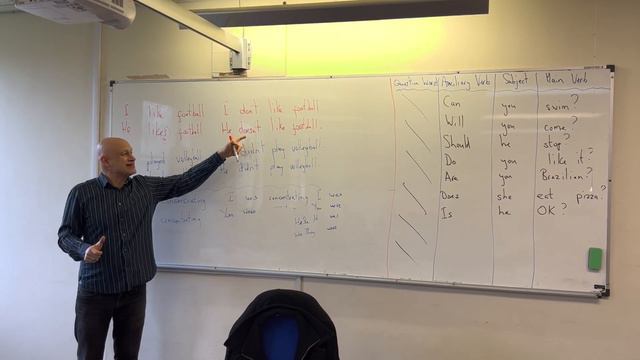 I like football I don't like football
He likes football He doesn't like football.
played volleyball didn't play volleyball
didn't play volleyball
concentrating I was concentrating I was
You were
He She It was
We They were
Question Word Auxiliary Verb Subject Main Verb
Can you swim?
Will you come?
Should he stop?
Do you like it?
Are you Brazilian?
Does she eat pizza?
Is he OK?